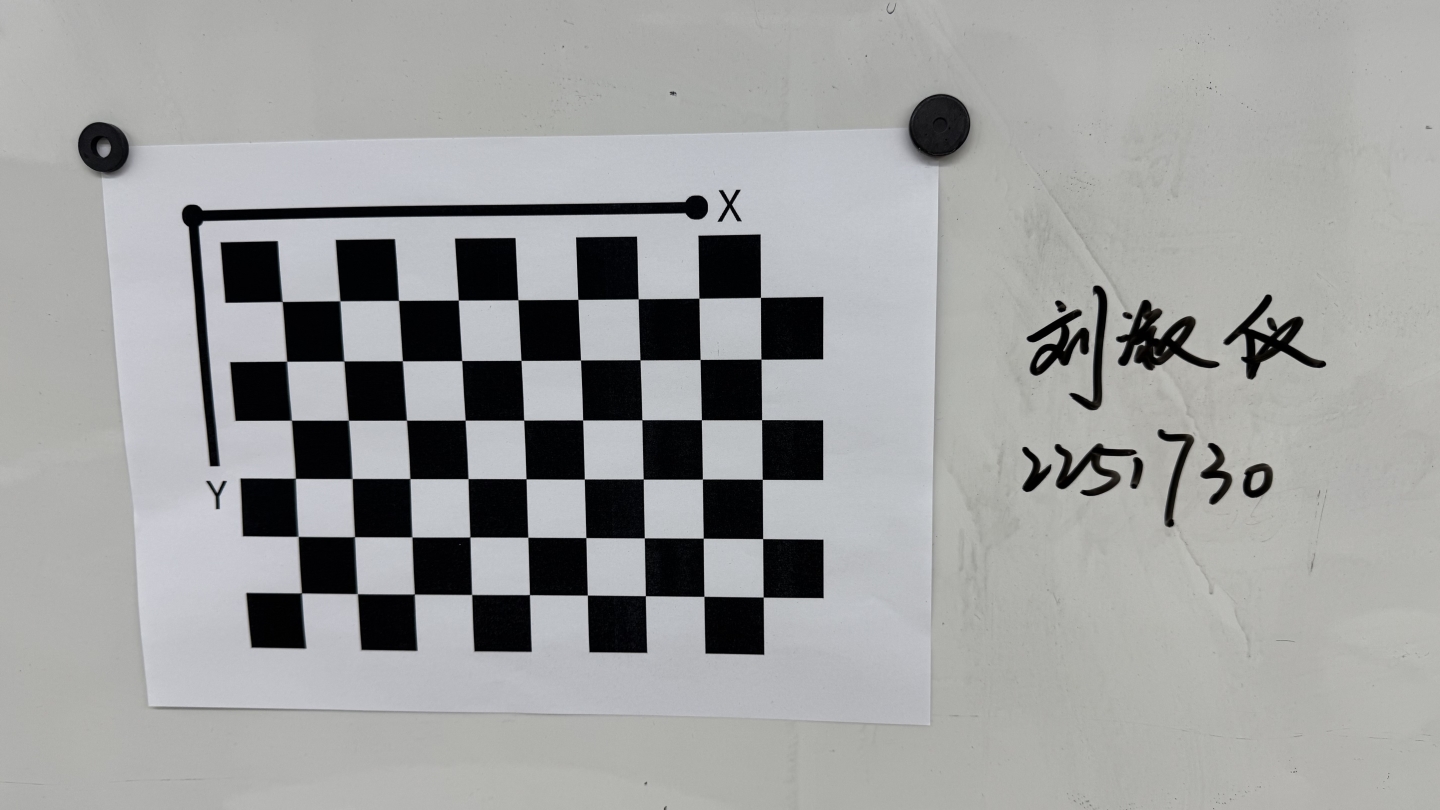 X
Y
刘淑仪
2251730